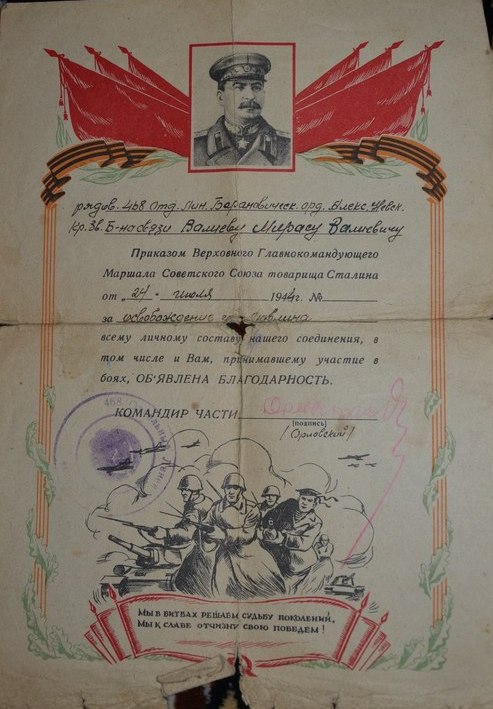 рядов. 468 отд. Лин. Барановическ. орд. Алекс. Невск.
Кр. Зв. Б-на связи Валиеву Мирасу Валиевичу
Приказом Верховного Главнокомандующего
Маршала Советского Союза товарища Сталина
от „24“ июля 1944 г. №
за освобождение г. Люблина
всему личному составу нашего соединения, в
том числе и Вам, принимавшему участие в
боях, ОБ'ЯВЛЕНА БЛАГОДАРНОСТЬ.
КОМАНДИР ЧАСТИ
(подпись)
(Орловский)
468
МЫ В БИТВАХ РЕШАЕМ СУДЬБУ ПОКОЛЕНИЙ,
МЫ К СЛАВЕ ОТЧИЗНУ СВОЮ ПОВЕДЕМ!